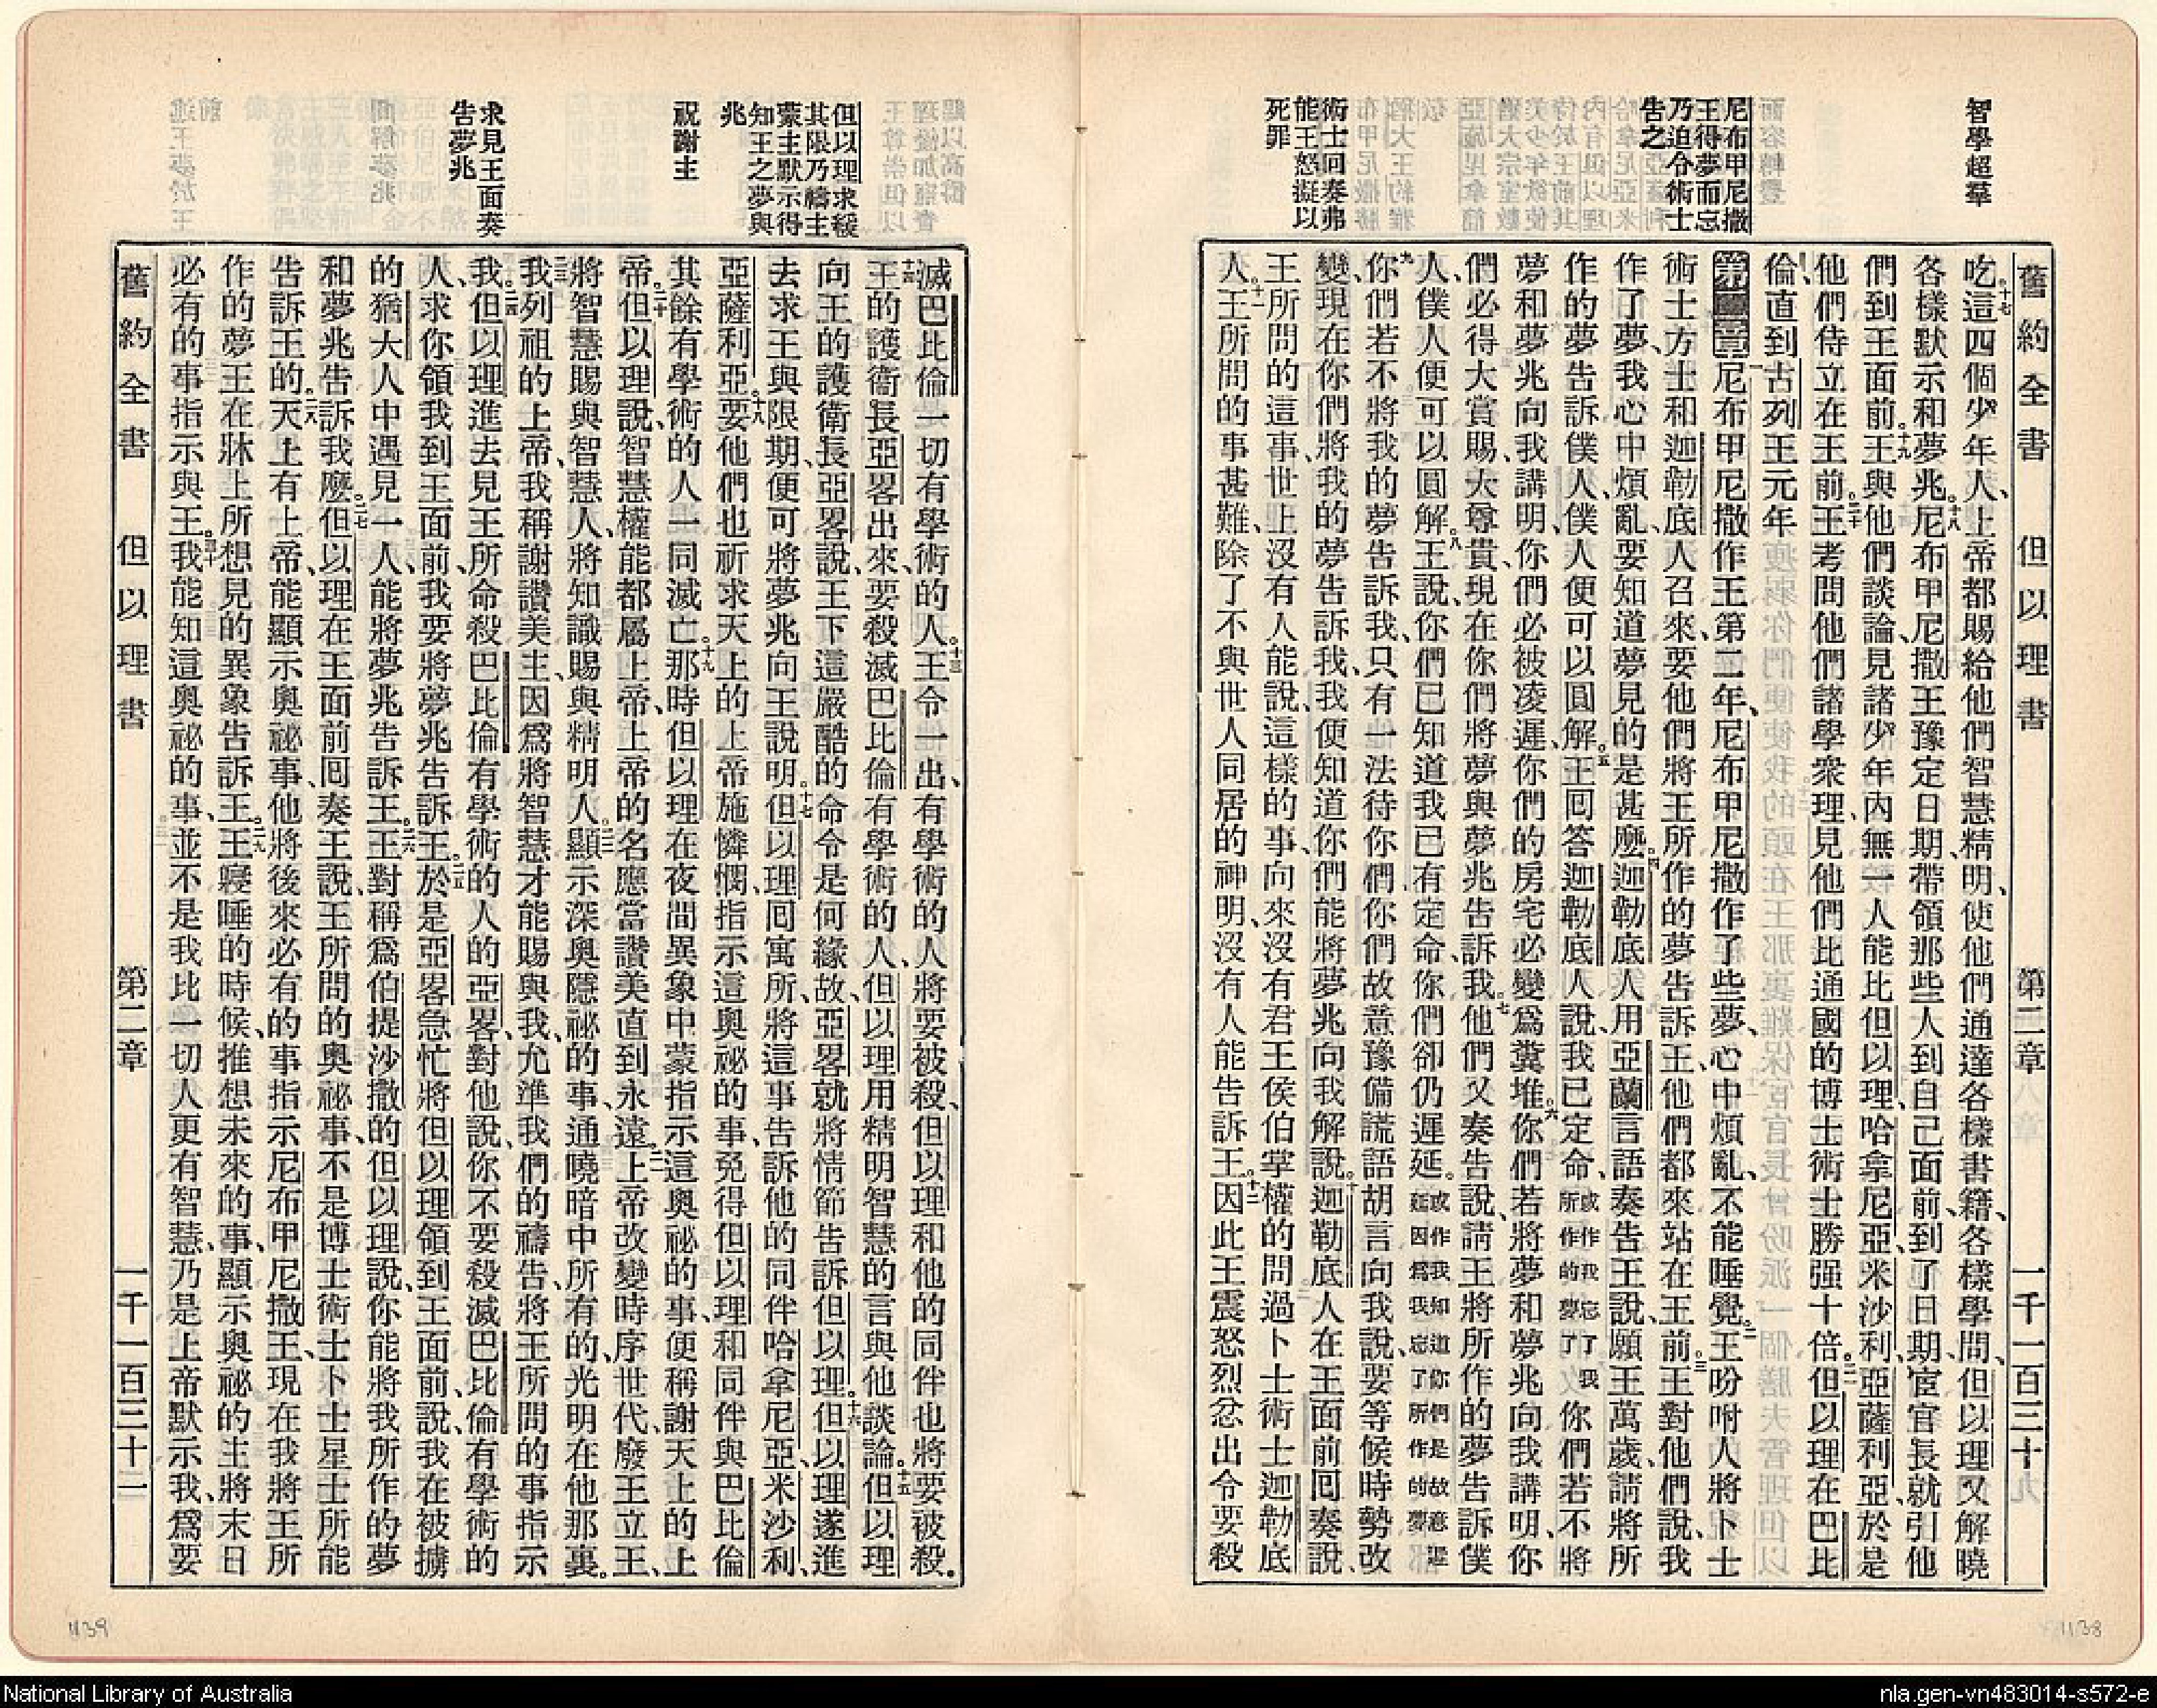 舊約全書 但以理書 第二章 一千一百三十
智學超羣
尼布甲尼撒
王得夢而忘
乃迫令術士
告之
術士回奏弗
能王怒擬以
死罪
吃十七這四個少年人上帝都賜給他們智慧精明使他們通達各樣書籍各樣學問但以理又解曉
各樣默示和夢兆十八尼布甲尼撒王豫定日期帶領那些人到自己面前到了日期宦官長就引他
們到王面前十九王與他們談論見諸少年內無一人能比但以理哈拿尼亞米沙利亞薩利亞於是
他們侍立在王前二十王考問他們諸學衆理見他們比通國的博士術士勝强十倍二一但以理在巴比
倫直到古列王元年
第二章一尼布甲尼撒作王第二年尼布甲尼撒作了些夢心中煩亂不能睡覺二王吩咐人將卜士
術士方士和迦勒底人召來要他們將王所作的夢告訴王他們都來站在王前三王對他們說我
作了夢我心中煩亂要知道夢見的是甚麽四迦勒底人用亞蘭言語奏告王說願王萬歲請將所
作的夢告訴僕人僕人便可以圓解五王囘答迦勒底人說我已定命或作我忘了我所作的夢了你們若不將
夢和夢兆向我講明你們必被凌遲你們的房宅必變爲糞堆六你們若將夢和夢兆向我講明你
們必得大賞賜大尊貴現在你們將夢與夢兆告訴我七他們又奏告說請王將所作的夢告訴僕
人僕人便可以圓解八王說你們已知道我已有定命你們卻仍遲延或作我知道你們是故意遲延因爲我忘了所作的夢
九你們若不將我的夢告訴我只有一法待你們你們故意豫備謊語胡言向我說要等候時勢改
變現在你們將我的夢告訴我我便知道你們能將夢兆向我解說十迦勒底人在王面前囘奏說
王所問的這事世上沒有人能說這樣的事向來沒有君王侯伯掌權的問過卜士術士迦勒底
人十一王所問的事甚難除了不與世人同居的神明沒有人能告訴王十二因此王震怒烈忿出令要殺
但以理求緩
其限乃禱主
蒙主默示得
知王之夢與
兆
祝謝主
求見王面奏
告夢兆
滅巴比倫一切有學術的人十三王令一出有學術的人將要被殺但以理和他的同伴也將要被殺
十四王的護衞長亞畧出來要殺滅巴比倫有學術的人但以理用精明智慧的言與他談論十五但以理
向王的護衞長亞畧說王下這嚴酷的命令是何緣故亞畧就將情節告訴但以理十六但以理遂進
去求王與限期便可將夢兆向王說明十七但以理囘寓所將這事告訴他的同伴哈拿尼亞米沙利
亞薩利亞十八要他們也祈求天上的上帝施憐憫指示這奧祕的事免得但以理和同伴與巴比倫
其餘有學術的人一同滅亡十九那時但以理在夜間異象中蒙指示這奧祕的事便稱謝天上的上
帝二十但以理說智慧權能都屬上帝上帝的名應當讚美直到永遠二一上帝改變時序世代廢王立王
將智慧賜與智慧人將知識賜與精明人二二顯示深奧隱祕的事通曉暗中所有的光明在他那裏
二三我列祖的上帝我稱謝讚美主因爲將智慧才能賜與我允準我們的禱告將王所問的事指示
我二四但以理進去見王所命殺巴比倫有學術的人的亞畧對他說你不要殺滅巴比倫有學術的
人求你領我到王面前我要將夢兆告訴王二五於是亞畧急忙將但以理領到王面前說我在被擄
的猶大人中遇見一人能將夢兆告訴王二六王對稱爲伯提沙撒的但以理說你能將我所作的夢
和夢兆告訴我麽二七但以理在王面前囘奏王說王所問的奧祕事不是博士術士卜士星士所能
告訴王的二八天上有上帝能顯示奧祕事他將後來必有的事指示尼布甲尼撒王現在我將王所
作的夢王在牀上所想見的異象告訴王二九王寢睡的時候推想未來的事顯示奧祕的主將末日
必有的事指示與王三十我能知這奧祕的事並不是我比一切人更有智慧乃是上帝默示我爲要
舊約全書 但以理書 第二章 一千一百三十二
1139
1138
National Library of Australia
nla.gen-vn483014-s572-e